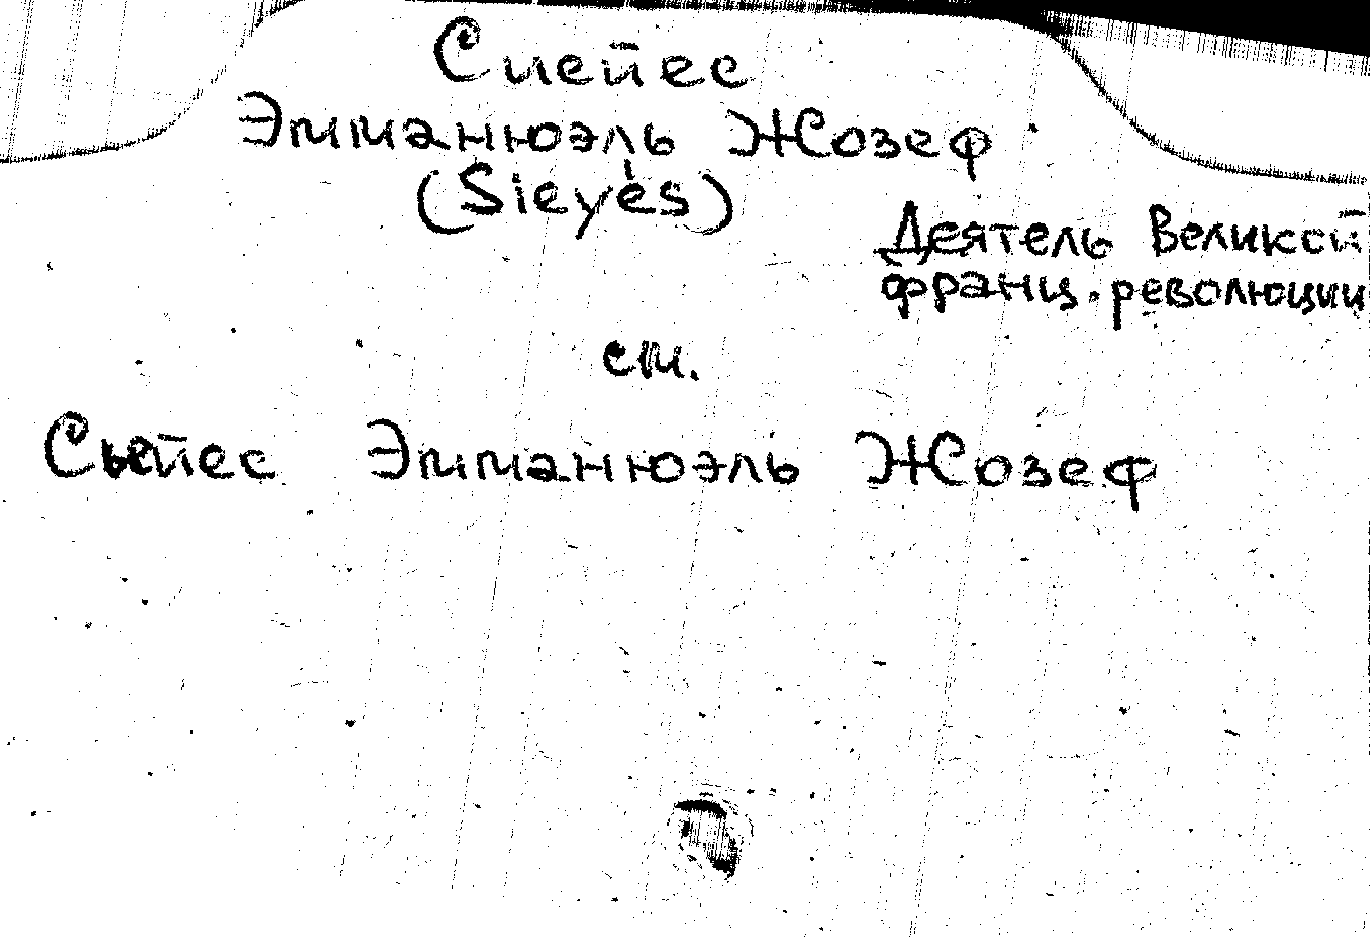 Сиейес
Эммануэль Жозеф
(Sieyès)
Деятель Великой
франц. революции
см.
Сьейес Эммануэль Жозеф